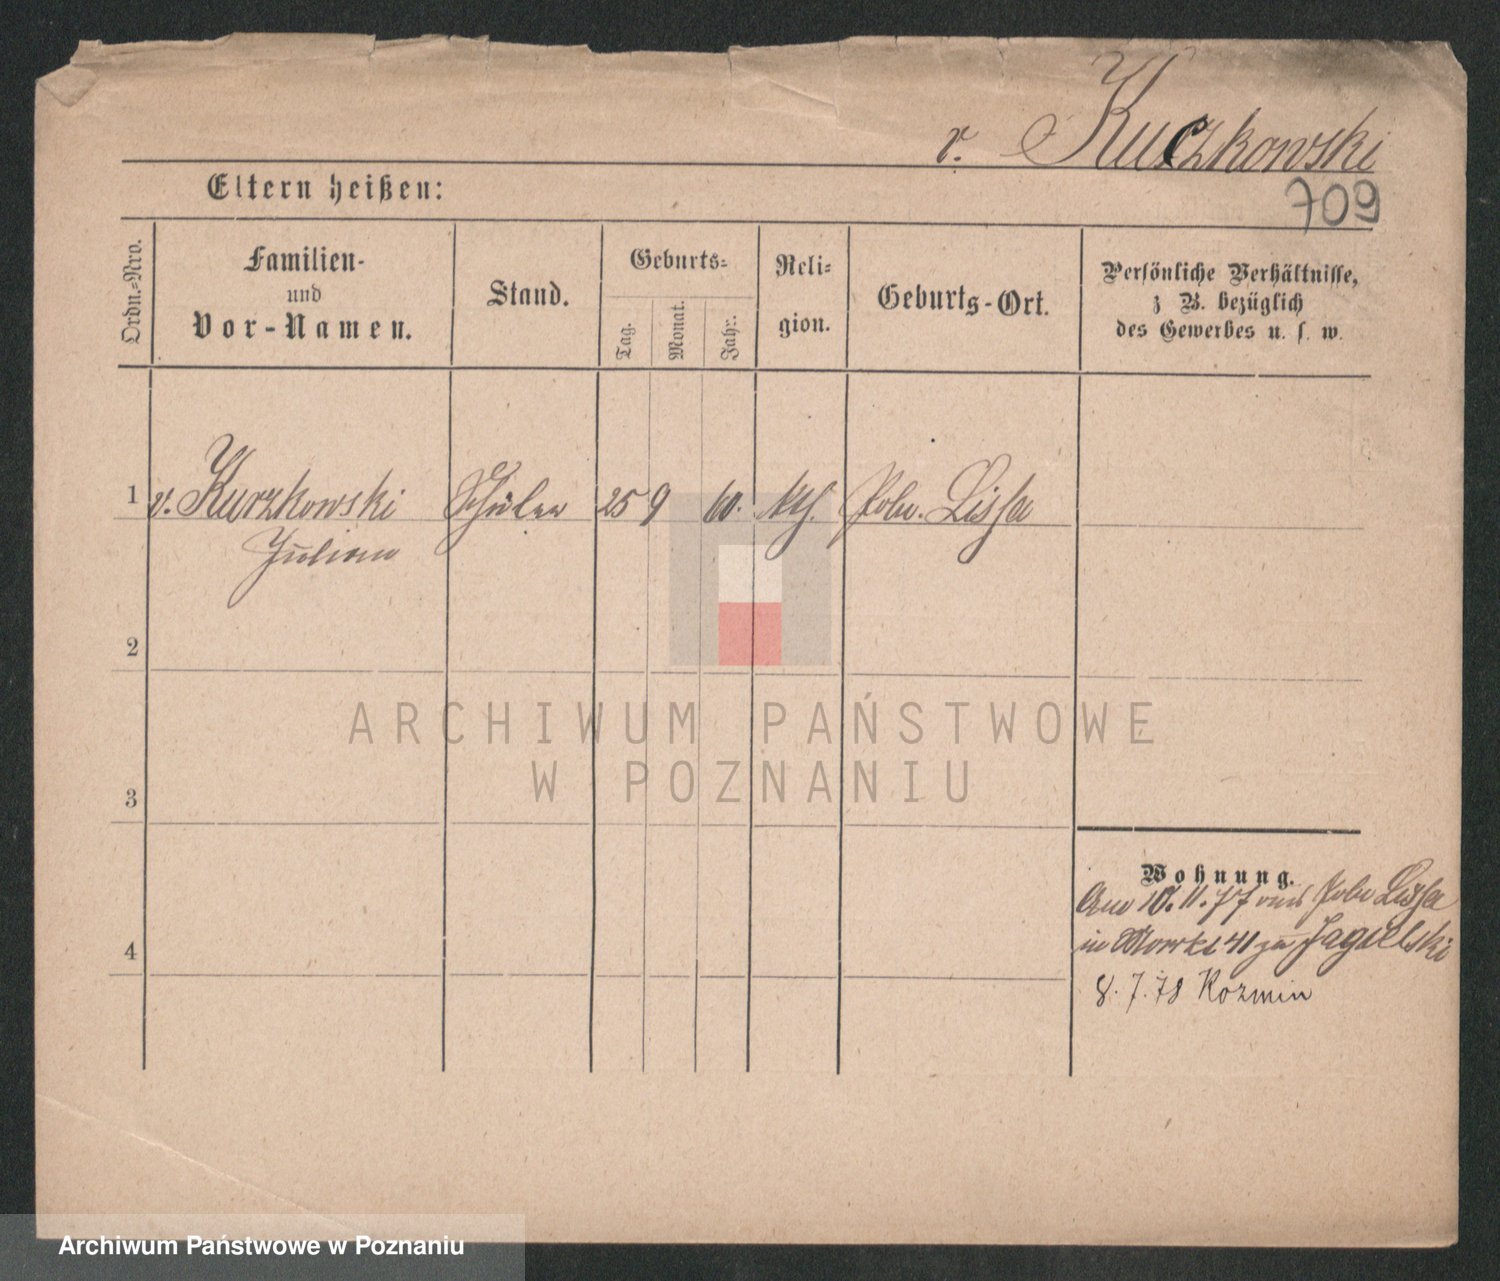 v. Kuczkowski
709
Eltern heißen:
Ordn.=Nro.
Familien-
und
Vor-Namen.
Stand.
Geburts=
Tag.
Monat.
Jahr.
Reli=
gion.
Geburts-Ort.
Persönliche Verhältnisse,
z B. bezüglich
des Gewerbes u. s. w.
1 v. Kurzkowski Schüler 25 9 60. kth. Poln. Lissa
Julian
2
ARCHIWUM PAŃSTWOWE
W POZNANIU
3
Wohnung.
Am 10. 11. 77 aus Poln Lissa
in Markt 41 zu Jagielski
4
8. 7. 78 Kozmin
Archiwum Państwowe w Poznaniu